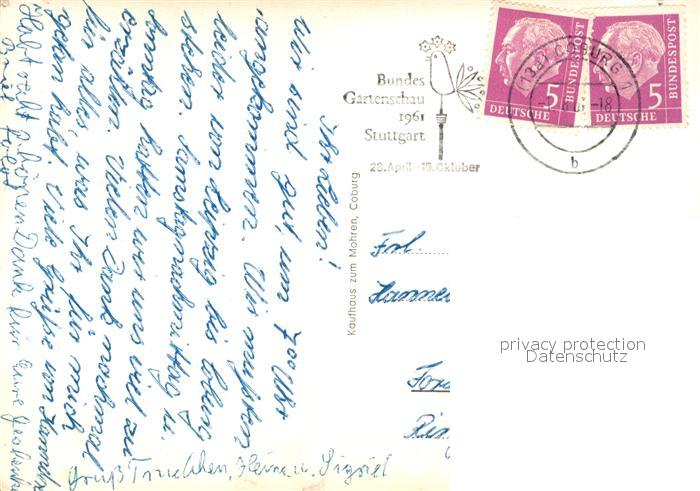 Ihr Lieben!
Wir sind gut, um 7.00 Uhr
angekommen. Wir mussten
leider von Leipzig bis Coburg
stehen. Samstagnachmittag u.
Sonntag hatten wir uns viel zu
erzählen. Vielen Dank nochmal
für alles was Ihr für mich
getan habt. Viele Grüße von
Habt recht schönen Dank für Eure
Gruß Trudchen, Heine u. Sigrid
Bundes
Gartenschau
1961
Stuttgart
28. April - 15. Oktober
(13a) COBURG 1
-18
b
5
DEUTSCHE
BUNDESPOST
5
DEUTSCHE
BUNDESPOST
Kaufhaus zum Mohren, Coburg
Frl.
Hanne
privacy protection
Datenschutz